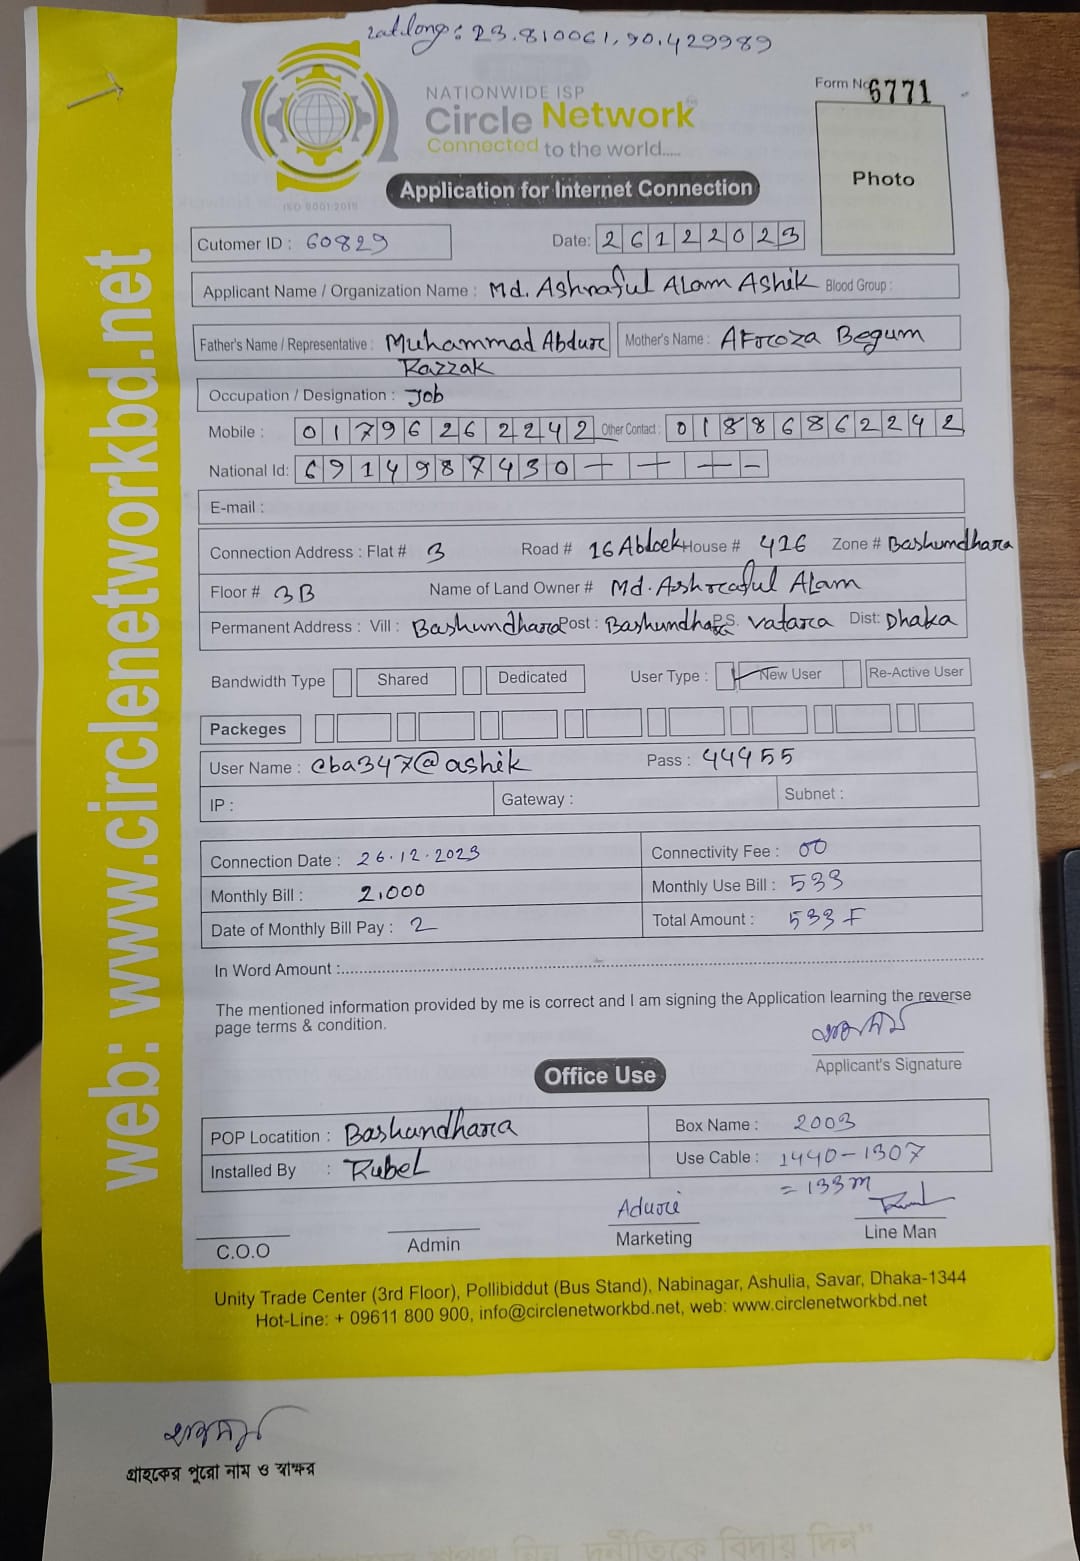 Lat.long: 23.810061, 90.429989
NATIONWIDE ISP
Circle Network
Connected to the world.....
ISO 9001:2015
Form No 6771
Photo
Application for Internet Connection
Cutomer ID : 60829 Date: 26122023
Applicant Name / Organization Name : Md. Ashraful Alam Ashik Blood Group :
Father's Name / Representative : Muhammad Abdur Razzak Mother's Name : Afroza Begum
Occupation / Designation : Job
Mobile : 01796262242 Other Contact : 01886862242
National Id: 6914987430
E-mail :
Connection Address : Flat # 3 Road # 16 Ablock House # 426 Zone # Bashundhara
Floor # 3B Name of Land Owner # Md. Ashraful Alam
Permanent Address : Vill : Bashundhara Post : Bashundhara P.S. Vatara Dist: Dhaka
Bandwidth Type Shared Dedicated User Type : New User Re-Active User
Packeges
User Name : cba347@ashik Pass : 44955
IP : Gateway : Subnet :
Connection Date : 26.12.2023 Connectivity Fee : 00
Monthly Bill : 2,000 Monthly Use Bill : 533
Date of Monthly Bill Pay : 2 Total Amount : 533 F
In Word Amount :
The mentioned information provided by me is correct and I am signing the Application learning the reverse
page terms & condition.
Applicant's Signature
Office Use
POP Locatition : Bashundhara Box Name : 2003
Installed By : Rubel Use Cable : 1440-1307
= 133m
Aduri
C.O.O Admin Marketing Line Man
Unity Trade Center (3rd Floor), Pollibiddut (Bus Stand), Nabinagar, Ashulia, Savar, Dhaka-1344
Hot-Line: + 09611 800 900, info@circlenetworkbd.net, web: www.circlenetworkbd.net
web: www.circlenetworkbd.net
গ্রাহকের পুরো নাম ও স্বাক্ষর
দুর্নীতিকে বিদায় দিন"